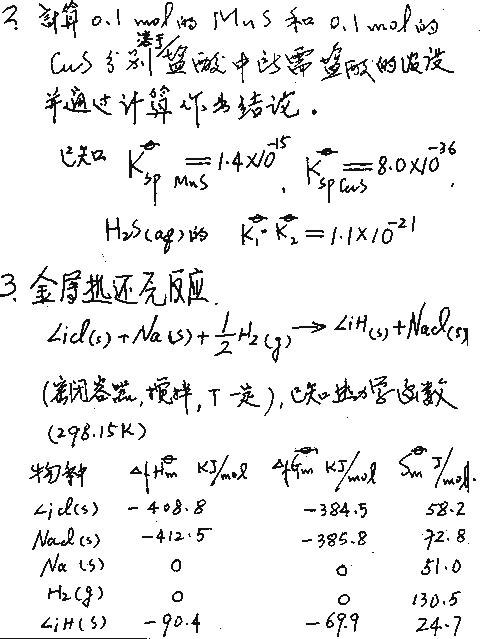 2. 计算0.1mol的MnS和0.1mol的
CuS分别溶于盐酸中所需盐酸的浓度
并通过计算作出结论。
已知 K^⊖sp MnS = 1.4×10^-15, K^⊖sp CuS = 8.0×10^-36,
H₂S(aq)的 K₁^⊖·K₂^⊖ = 1.1×10^-21
3. 金属热还元反应.
Licl(s)+Na(s)+1/2H₂(g)→LiH(s)+Nacl(s)
(密闭容器,搅拌,T一定),已知热力学函数
(298.15K)
物种 ΔfHm^⊖ KJ/mol ΔfGm^⊖ KJ/mol Sm^⊖ J/mol.
Licl(s) -408.8 -384.5 58.2
Nacl(s) -412.5 -385.8 72.8
Na(s) 0 0 51.0
H₂(g) 0 0 130.5
LiH(s) -90.4 -69.9 24.7